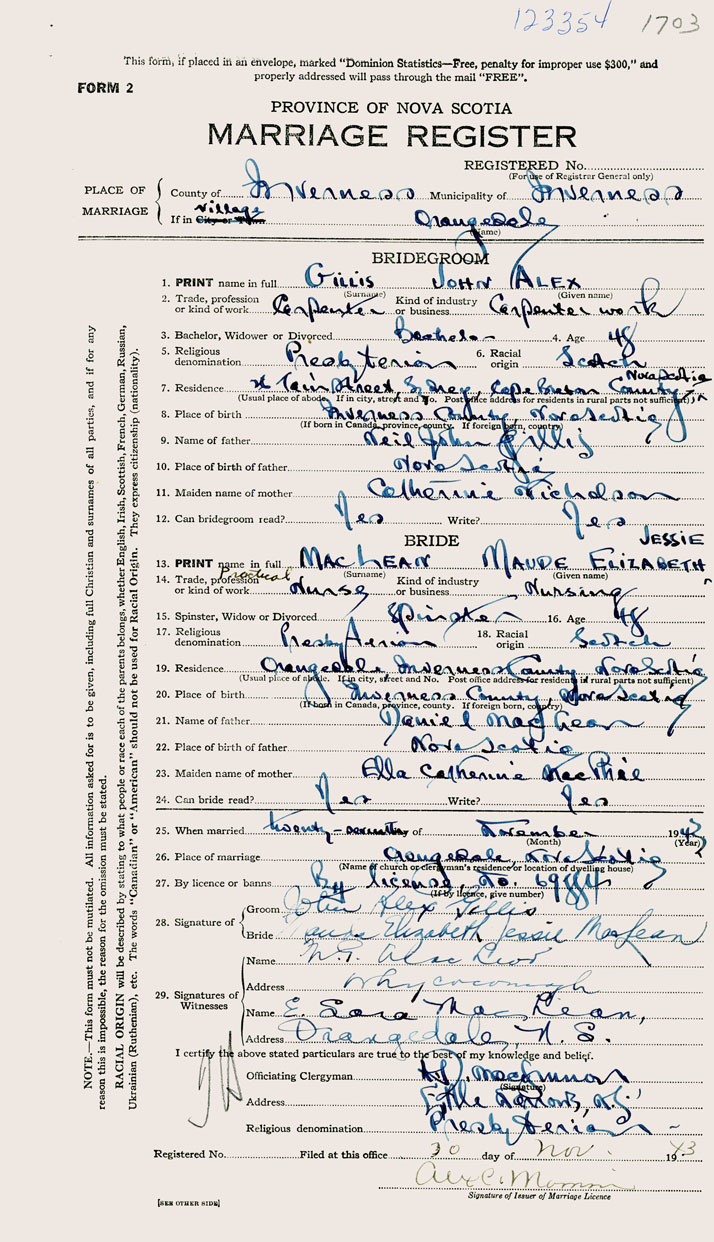 123354 1703
This form, if placed in an envelope, marked “Dominion Statistics—Free, penalty for improper use $300,” and
properly addressed will pass through the mail “FREE”.
FORM 2
PROVINCE OF NOVA SCOTIA
MARRIAGE REGISTER
REGISTERED No.
(For use of Registrar General only)
PLACE OF MARRIAGE
County of Inverness Municipality of Inverness
Village
If in City or Town Orangedale
(Name)
BRIDEGROOM
1. PRINT name in full GILLIS JOHN ALEX
(Surname) (Given name)
2. Trade, profession or kind of work Carpenter Kind of industry or business Carpenter work
3. Bachelor, Widower or Divorced Bachelor 4. Age 48
5. Religious denomination Presbyterian 6. Racial origin Scotch
Nova Scotia
7. Residence Street, Sydney, Cape Breton County
(Usual place of abode. If in city, street and No. Post office address for residents in rural parts not sufficient)
8. Place of birth Inverness County, Nova Scotia
(If born in Canada, province, county. If foreign born, country)
9. Name of father Neil John Gillis
10. Place of birth of father Nova Scotia
11. Maiden name of mother Catherine Nicholson
12. Can bridegroom read? Yes Write? Yes
BRIDE
JESSIE
13. PRINT name in full MACLEAN MAUDE ELIZABETH
(Surname) (Given name)
Practical
14. Trade, profession or kind of work Nurse Kind of industry or business Nursing
15. Spinster, Widow or Divorced Spinster 16. Age 48
17. Religious denomination Presbyterian 18. Racial origin Scotch
19. Residence Orangedale Inverness County Nova Scotia
(Usual place of abode. If in city, street and No. Post office address for residents in rural parts not sufficient)
20. Place of birth Inverness County, Nova Scotia
(If born in Canada, province, county. If foreign born, country)
21. Name of father Daniel MacLean
22. Place of birth of father Nova Scotia
23. Maiden name of mother Ella Catherine MacPhie
24. Can bride read? Yes Write? Yes
25. When married twenty-seventh of November 1943
(Month) (Year)
26. Place of marriage Orangedale, Nova Scotia
(Name of church or clergyman's residence or location of dwelling house)
27. By licence or banns By license, No.
(If by licence, give number)
28. Signature of
Groom John Alex Gillis
Bride Maude Elizabeth Jessie MacLean
29. Signatures of Witnesses
Name
Address Whycocomagh
Name E. Sara MacLean,
Address Orangedale, N. S.
I certify the above stated particulars are true to the best of my knowledge and belief.
Officiating Clergyman MacKinnon
(Signature)
Address Little Narrows, N.S.
Religious denomination Presbyterian
Registered No. Filed at this office 30 day of Nov. 1943
Signature of Issuer of Marriage Licence
[SEE OTHER SIDE]
NOTE.—This form must not be mutilated. All information asked for is to be given, including full Christian and surnames of all parties, and if for any
reason this is impossible, the reason for the omission must be stated.
RACIAL ORIGIN will be described by stating to what people or race each of the parents belongs, whether English, Irish, Scottish, French, German, Russian,
Ukrainian (Ruthenian), etc. The words “Canadian” or “American” should not be used for Racial Origin. They express citizenship (nationality).